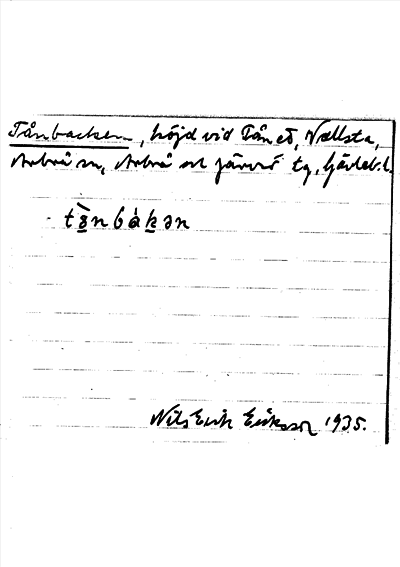 Tånbacken, höjd vid Tån eð, Vallsta,
Arbrå sn, Arbrå och Järvsö tg, Gävleb. l.
tö̀nbákən
Nils Erik Eriksson 1935.